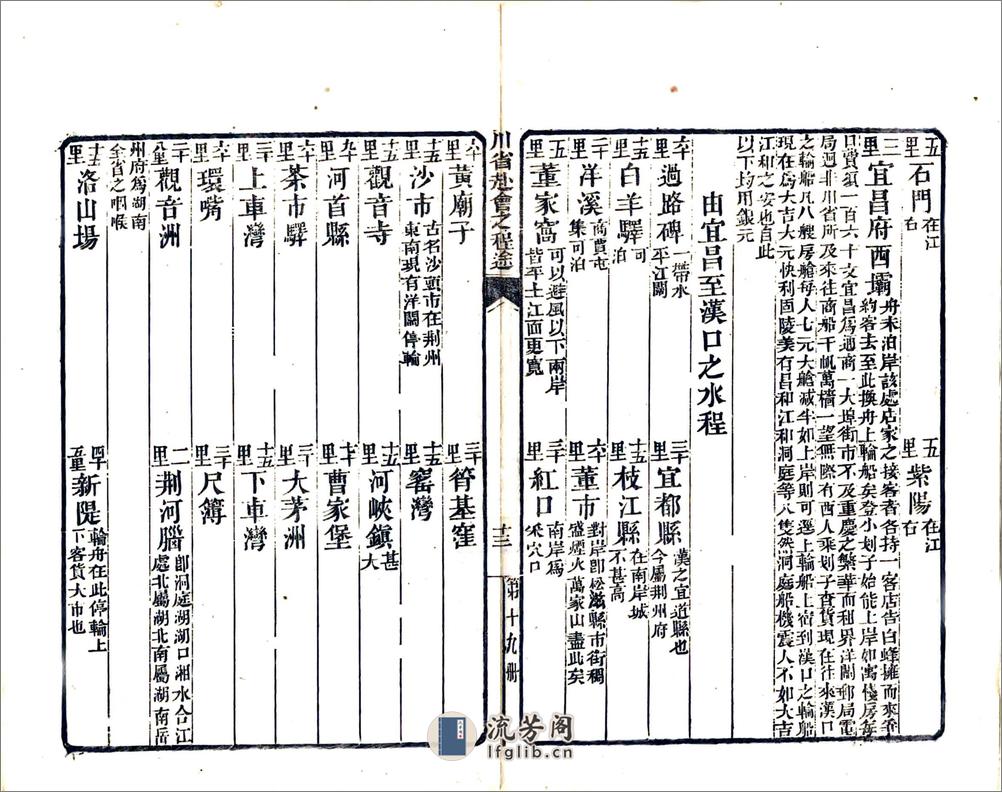 五里石門在江右
五里紫陽在江右
三里宜昌府西壩舟未泊岸該處店家之接客者各持一客店告白蜂擁而來乖
約客去至此換舟上輪船矣登小划子始能上岸如寓棧房每
日費須一百六十文宜昌為通商一大埠街市不及重慶之繁華而租界洋關郵局電
局迥非川省所及來往商船千帆萬檣一望無際有西人乘划子查貨現在往來漢口
之輪船凡八艘房艙每人七元大艙減半如上岸則可逕上輪船上宿到漢口之輪船
現在為大吉大元快利固陵美有昌和江和洞庭等八隻然洞庭船機震人不如大吉
江和之安也自此
以下均用銀元
由宜昌至漢口之水程
六十里過路碑一帶水平江闊
三十里宜都縣漢之宜道縣也今屬荆州府
六十里白羊驛可泊
十五里枝江縣在南岸城不甚高
三十里洋溪商賈屯集可泊
六十里董市對岸卽松滋縣市街稠盛煙火萬家山盡此矣
五里董家窩可以避風以下兩岸皆平土江面更寬
三十里紅口南岸為采穴口
川省赴會之程途
十三
第十九册
六十里黃廟子
三十里筲基窪
十五里沙市古名沙頭市在荆州東南現有洋關停輪
十五里窰灣
十五里觀音寺
十五里河峽鎮甚大
九十里河首縣
七十里曹家堡
六十里茶市驛
三十里大茅洲
三十里上車灣
十五里下車灣
六十里環嘴
三十里尺簿
二十八里觀音洲
二里荆河腦卽洞庭湖湖口湘水合江處北屬湖北南屬湖南岳
州府為湖南
全省之咽喉
十五里洛山場
新隄輪舟在此停輪上下客貨大市也
流芳阁
lfglib.cn